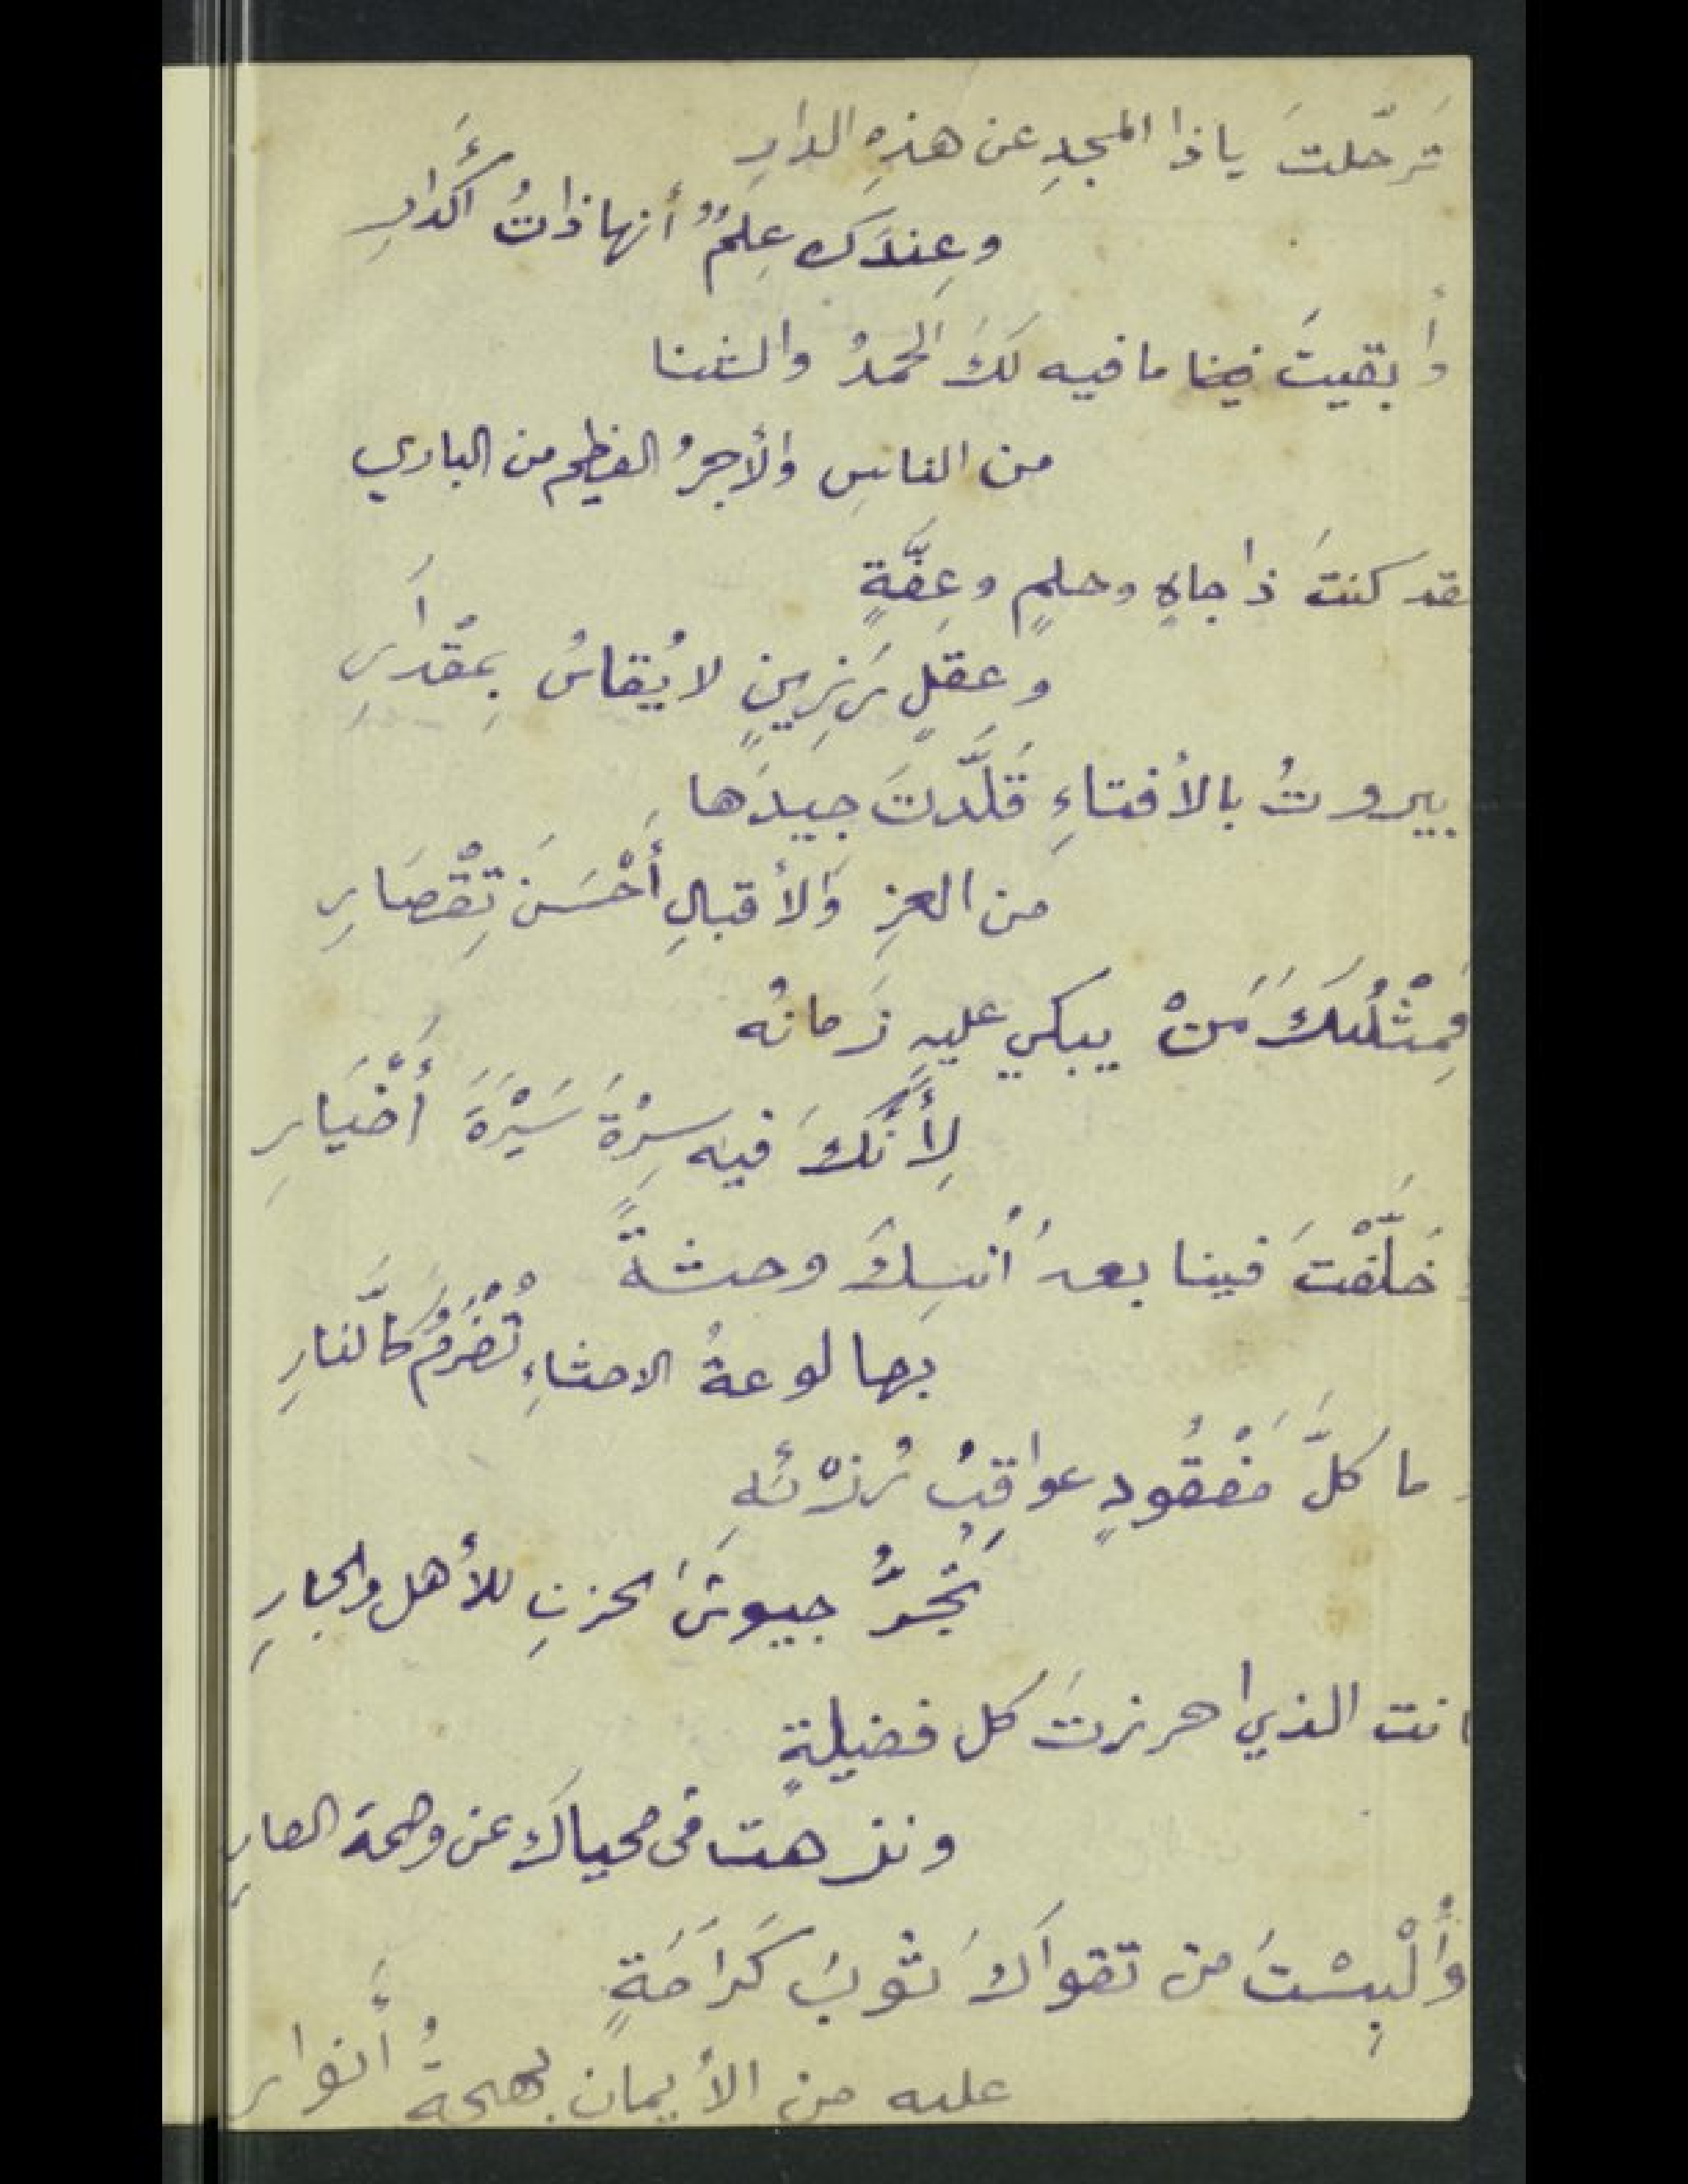 تَرحّلتَ ياذا المجدِ عن هذهِ الدارِ
وعِندَك عِلمٌ أنها ذاتُ أَكدارِ
وأبقيتَ فينا مافيه لَكَ الحمدُ والثنا
من الناسِ والأجرُ العظيم من الباري
قد كنتَ ذا جاهٍ وحلمٍ وعِفَّةٍ
وعقلٍ رَزِينٍ لا يُقاسُ بمِقْدارِ
بيروتُ بالأفتاءِ قَلَّدتَ جيدَها
من العزِ والأقبالِ أَحْسَنَ تِقْصَارِ
فمِثْلُكَ مَنْ يبكي عليهِ زَمانُه
لِأَنَّكَ فيه سِرْةَ سَيْرَةَ أَخْيَارِ
خَلَّفْتَ فينا بعدُ أُنسِكَ وحشةً
بها لوعةُ الاحشاءِ تُضْرَمُ كالنارِ
ما كلَّ مَفْقُودٍ عواقِبُ رُزْئهِ
تَجُرُّ جيوشَ الحزنِ للأهل والجارِ
انت الذي احرزتَ كل فضيلةٍ
ونزهت في محياكَ عن وصمة العارِ
وأُلْبِسْتَ من تقواكَ ثوبَ كَرَامَةٍ
عليه من الأيمان بهجةُ أَنوارِ